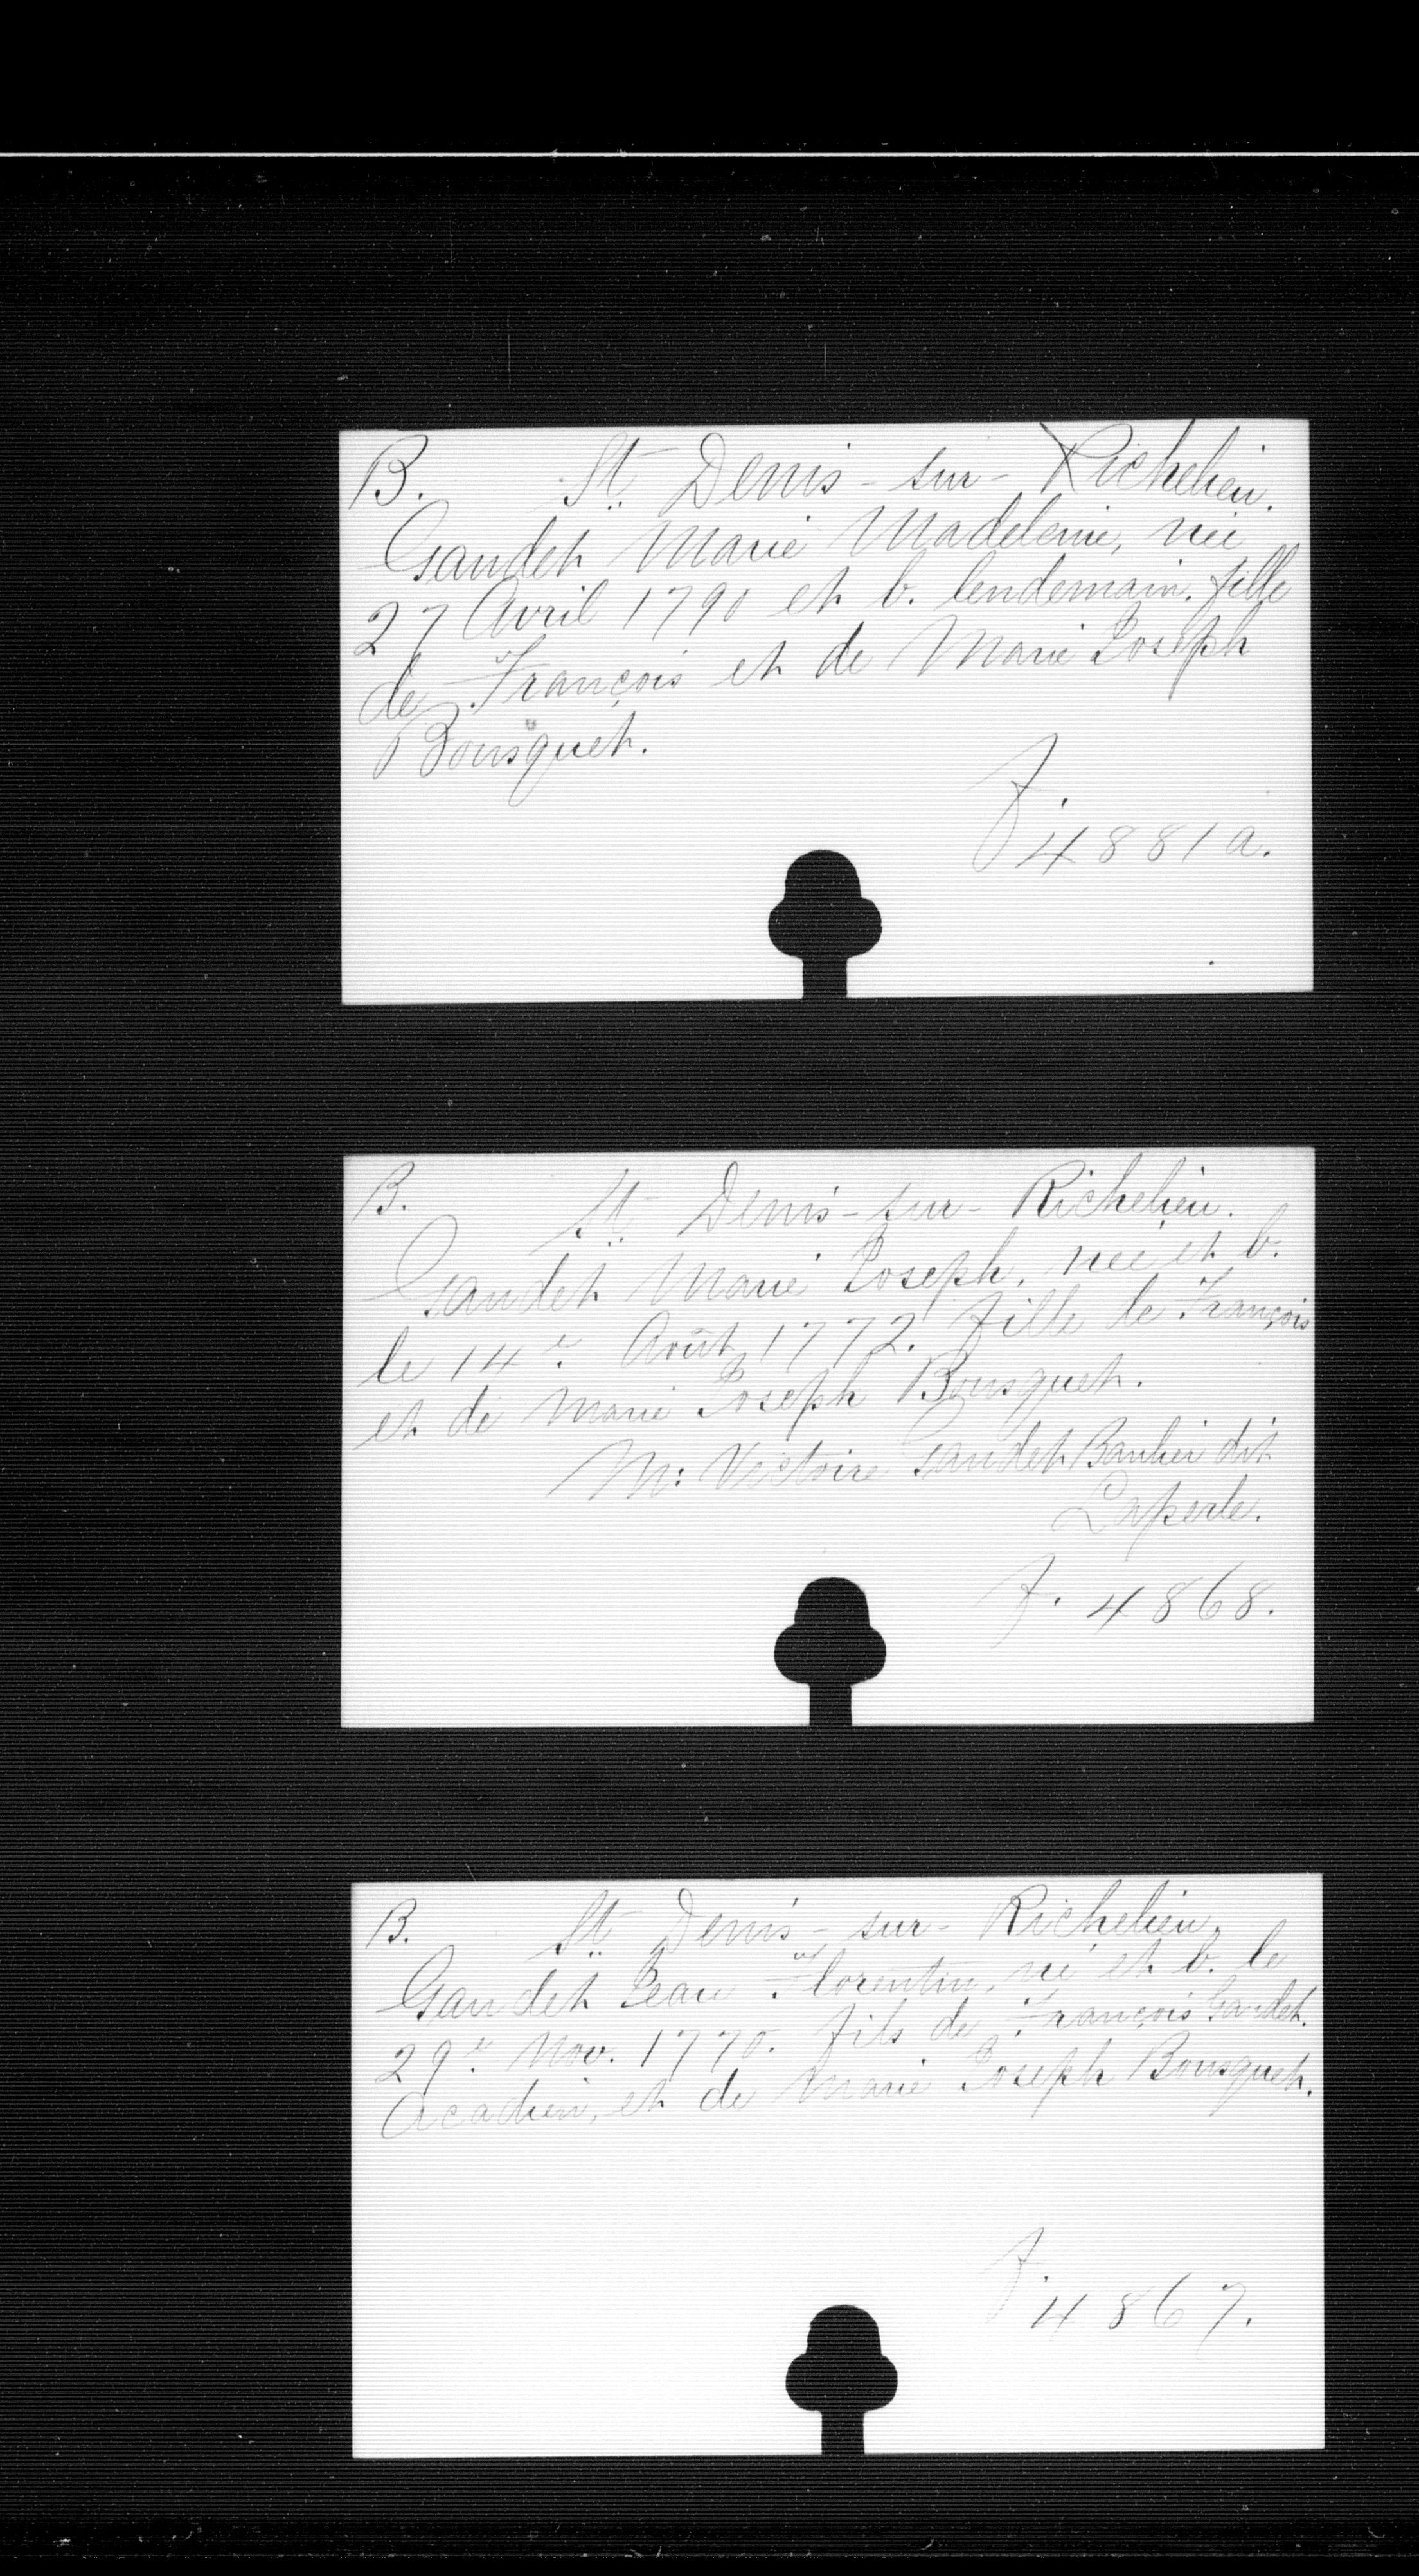 B. St. Denis-sur-Richelieu.
Gaudet Marie Madeleine, née
27 Avril 1790 et b. lendemain. fille
de François et de Marie Joseph
Bousquet.
f. 4881a.
B. St. Denis-sur-Richelieu.
Gaudet Marie Joseph, née et b.
le 14e. Août 1772. fille de François
et de Marie Joseph Bousquet.
M: Victoire Gaudet Banlier dit
Laperle.
f. 4868.
B. St. Denis-sur-Richelieu.
Gaudet Jean Florentin, né et b. le
29e. Nov. 1770. fils de François Gaudet.
Acadien, et de Marie Joseph Bousquet.
f. 4867.